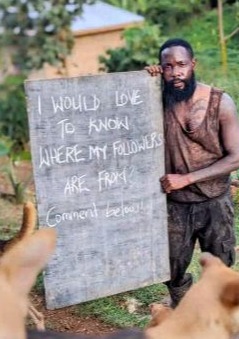 I WOULD LOVE
TO KNOW
WHERE MY FOLLOWERS
ARE FROM?
Comment below!!